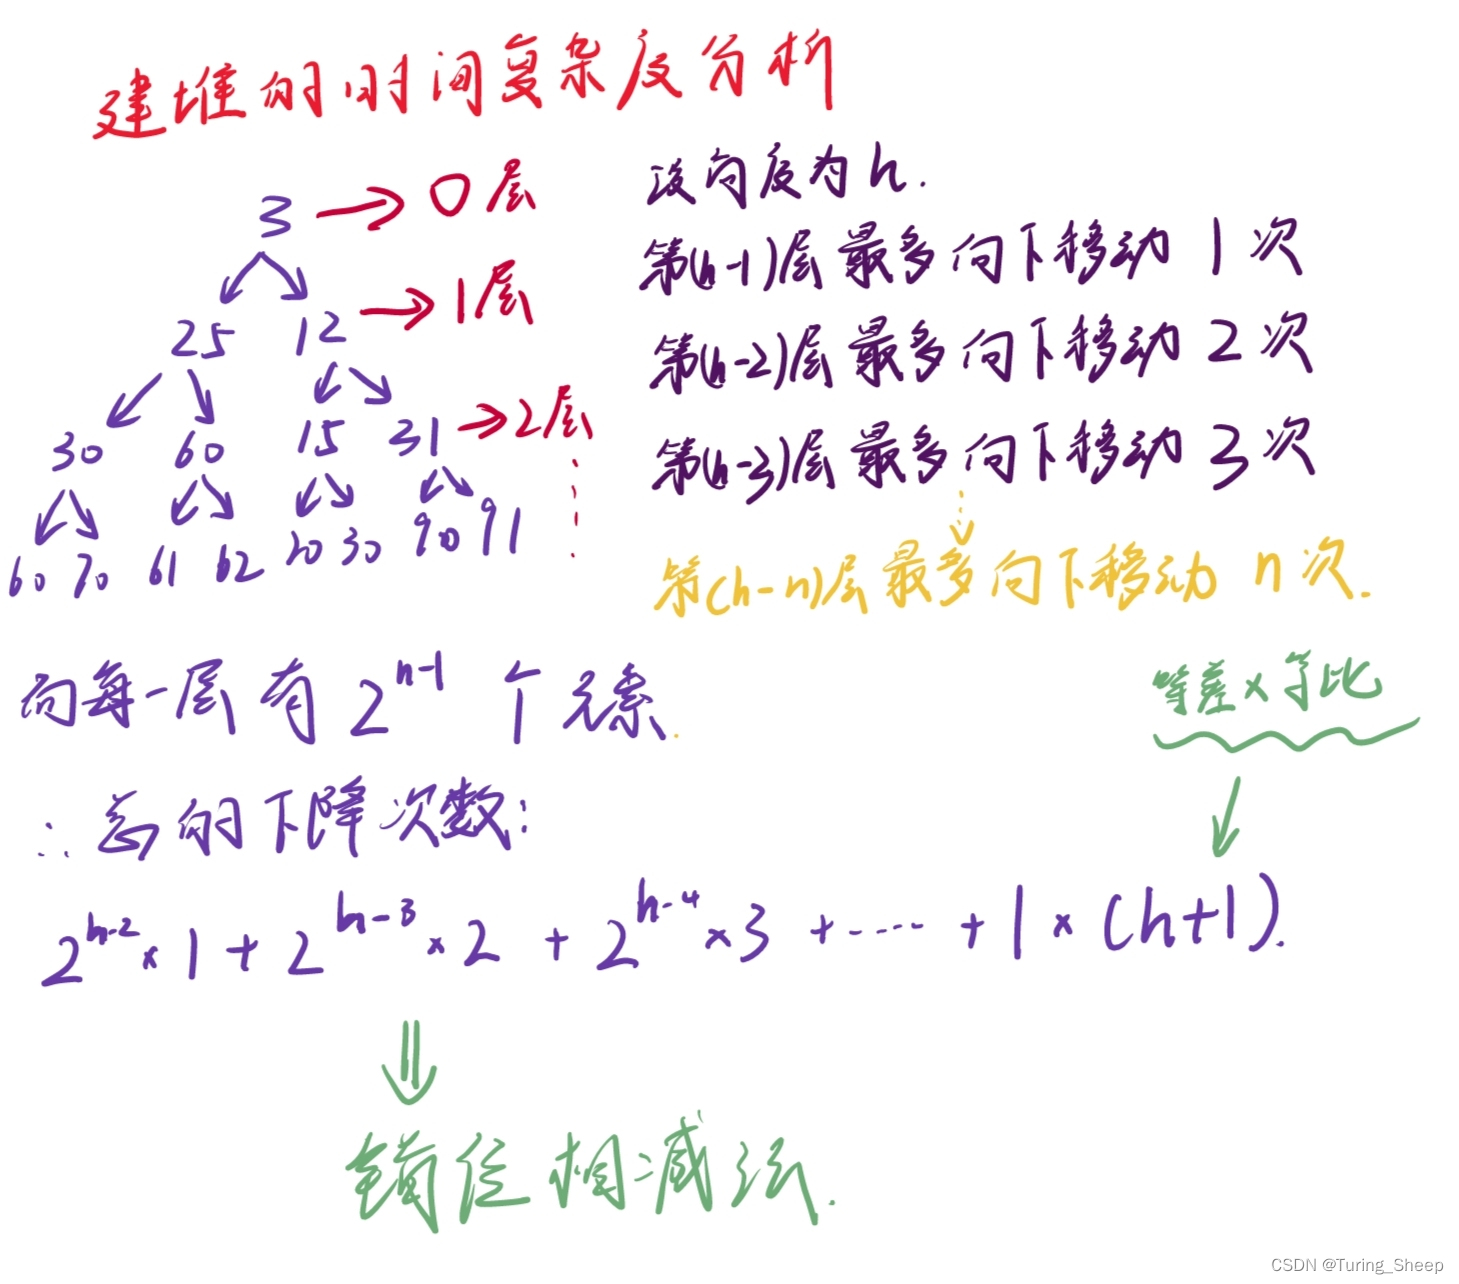 建堆的时间复杂度分析
3 → 0层
25 12 → 1层
30 60 15 31 → 2层
60 70 61 62 20 30 90 91
设高度为h.
第(h-1)层最多向下移动1次
第(h-2)层最多向下移动2次
第(h-3)层最多向下移动3次
第(h-n)层最多向下移动n次.
而每一层有2^{n-1}个元素.
等差×等比
∴总的下降次数:
2^{h-2}×1+2^{h-3}×2+2^{h-4}×3+-----+1×(h+1).
错位相减法.
CSDN @Turing_Sheep